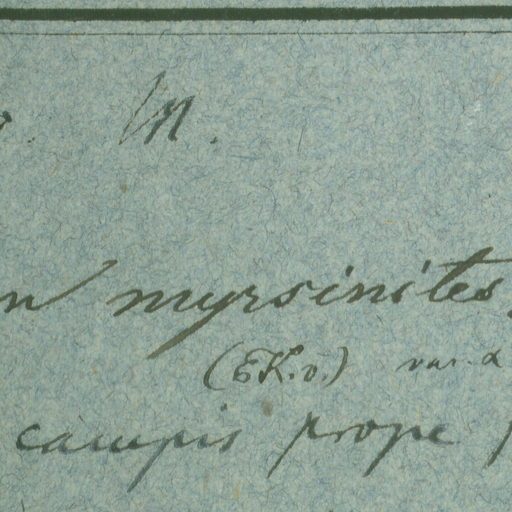 M.
n myrsinites
(EK.v.) var. α
campis prope